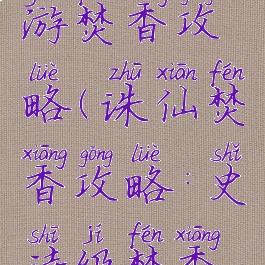 游焚香攻
lüè zhū xiān fén
略(诛仙焚
xiāng gōng lüè shǐ
香攻略:史
shī jí fén xiāng
诗级焚香